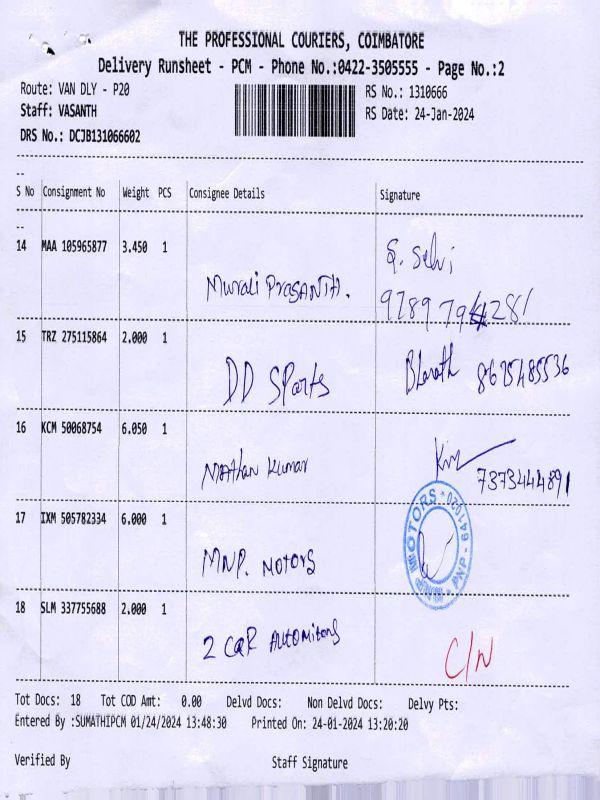 THE PROFESSIONAL COURIERS, COIMBATORE
Delivery Runsheet - PCM - Phone No.:0422-3505555 - Page No.:2
Route: VAN DLY - P20
RS No.: 1310666
Staff: VASANTH
RS Date: 24-Jan-2024
DRS No.: DCJB131066602
S No Consignment No Weight PCS Consignee Details Signature
14 MAA 105965877 3.450 1
S. Selvi
Murali PrasANTH.
9789794281
15 TRZ 275115864 2.000 1
DD SPorts Bharath 8675485536
16 KCM 50068754 6.050 1
MAthan Kumar
7373444891
17 IXM 505782334 6.000 1
MNP. MOTORS
MNP MOTORS * PNP - 641020 *
18 SLM 337755688 2.000 1
2 CaR C/N
Tot Docs: 18 Tot COD Amt: 0.00 Delvd Docs: Non Delvd Docs: Delvy Pts:
Entered By :SUMATHIPCM 01/24/2024 13:48:30 Printed On: 24-01-2024 13:20:20
Verified By Staff Signature